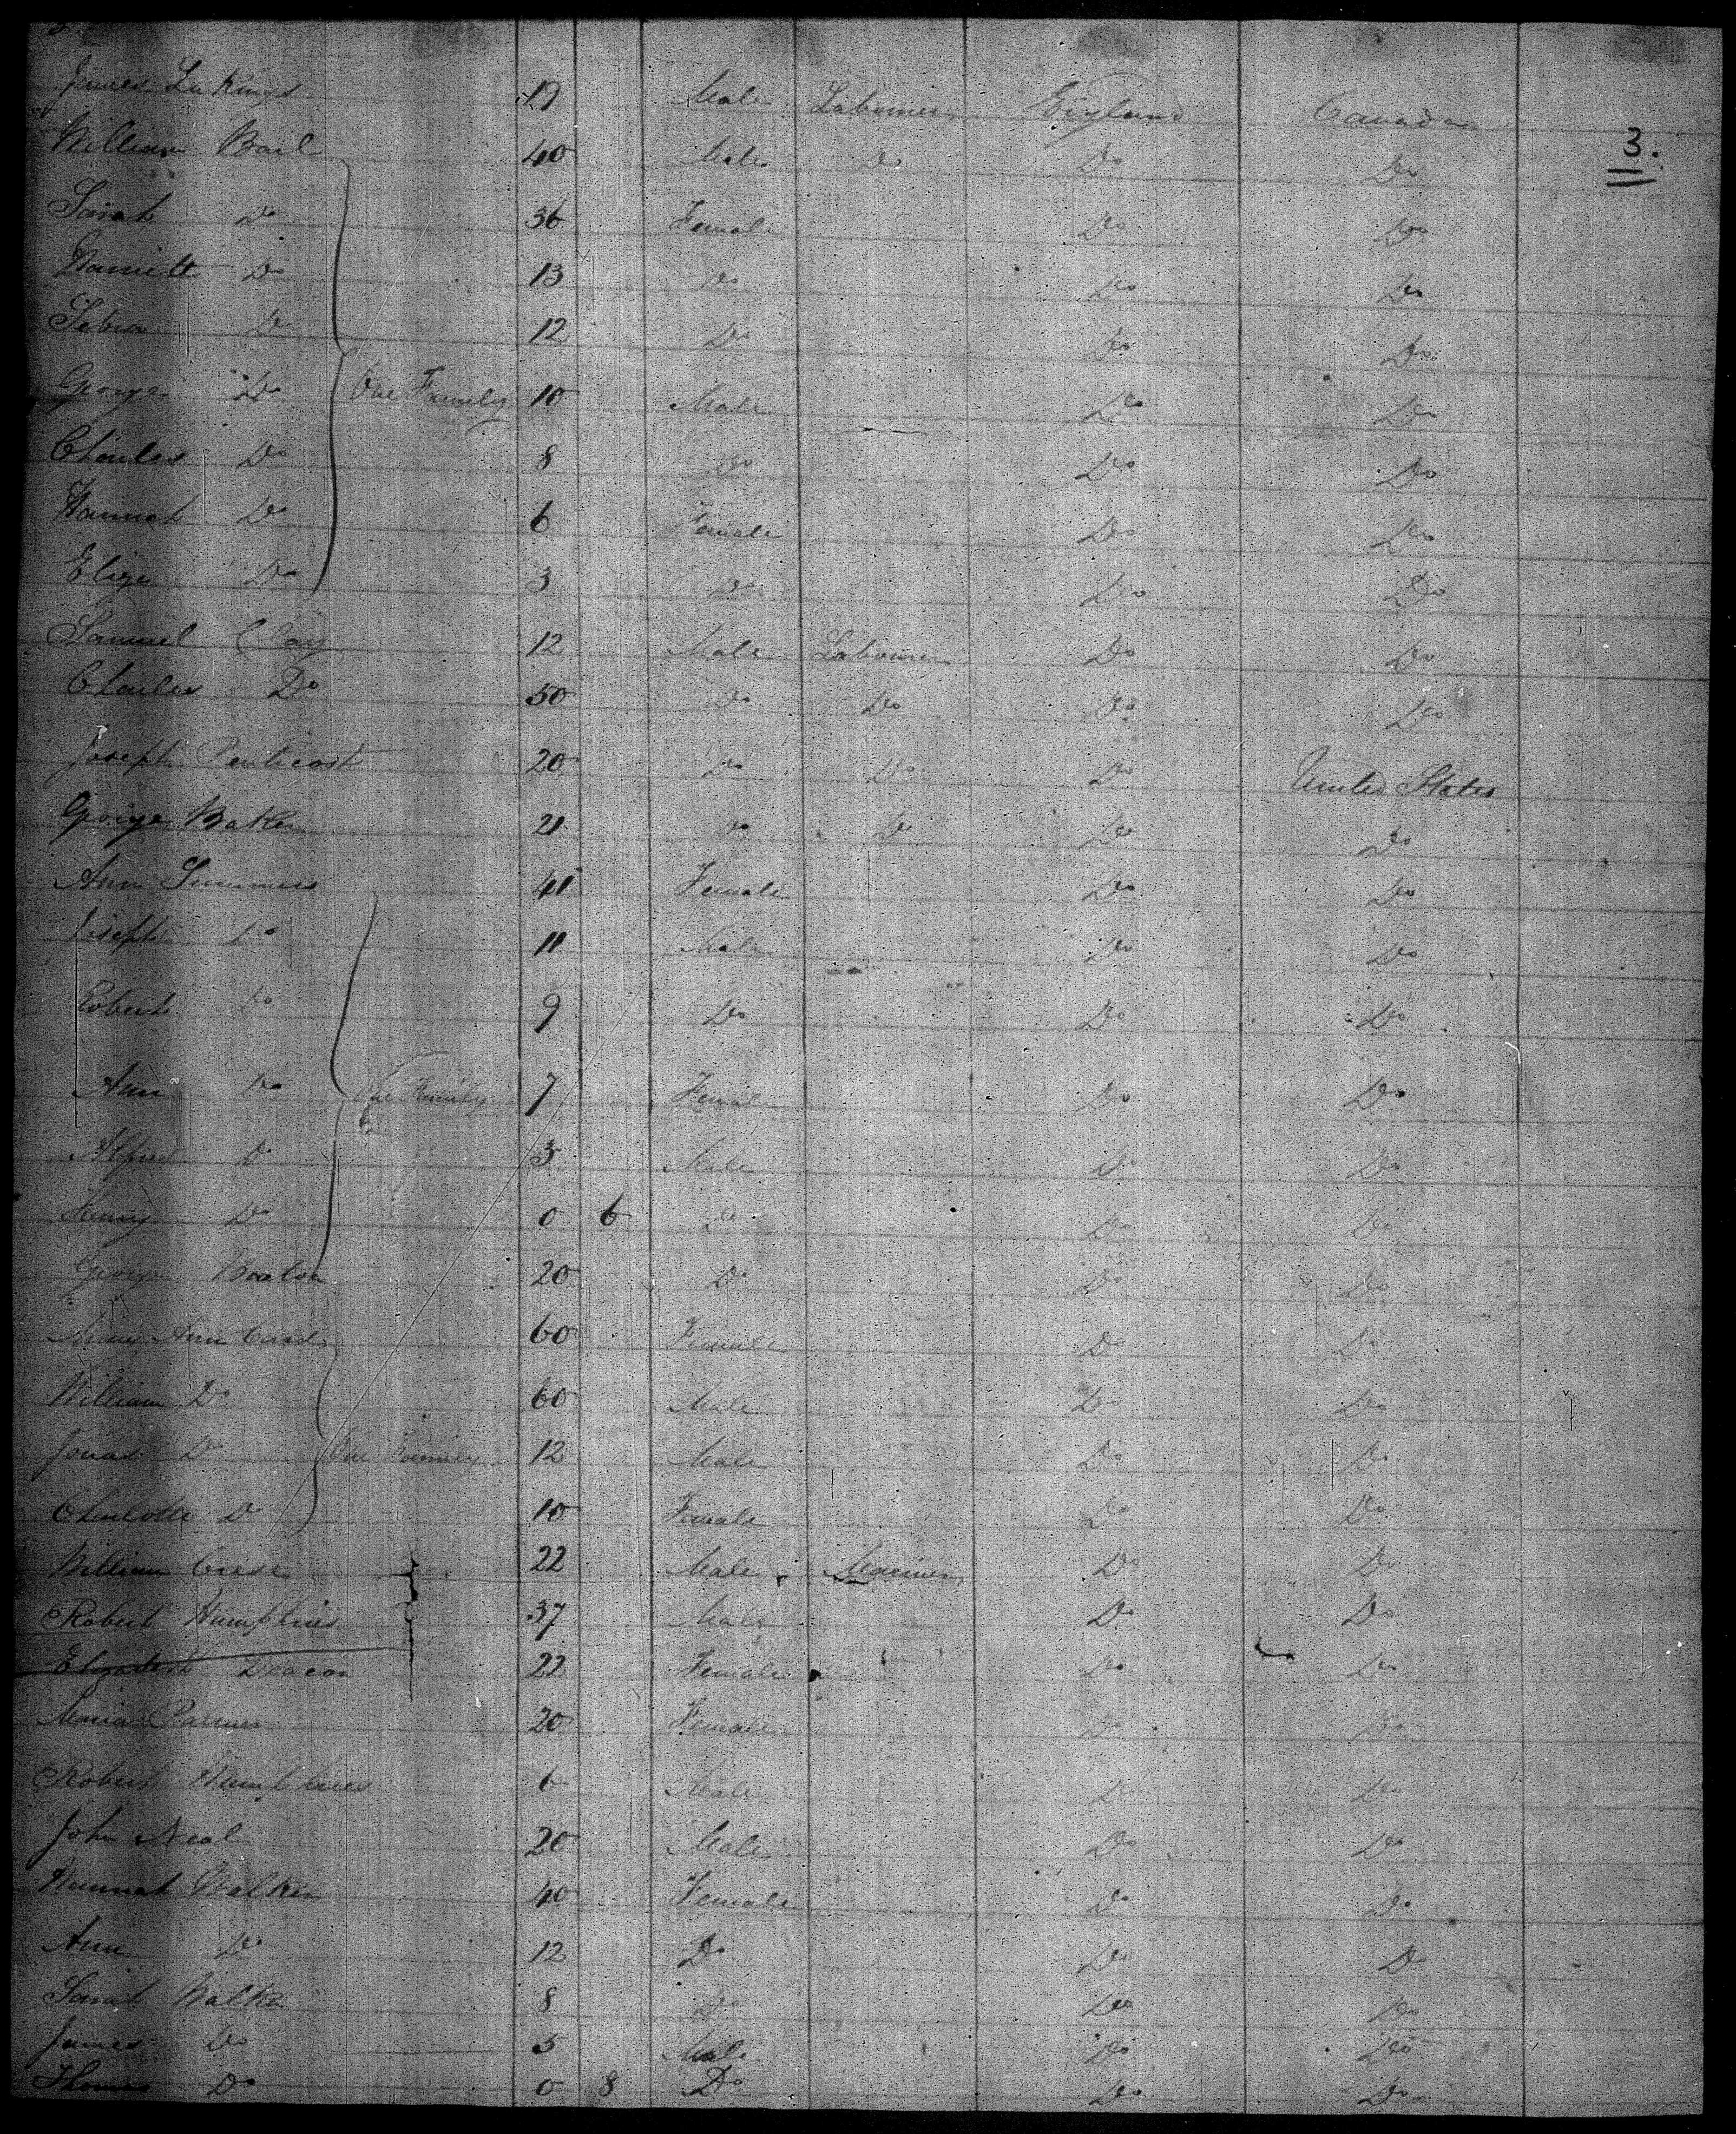 James 19 Male Labourer England Canada
3.
William Bail 40 Male Do Do Do
Sarah Do 36 Female Do Do
Do 13 Do Do Do
Do 12 Do Do Do
George Do One Family 10 Male Do Do
Charles Do 8 Do Do Do
Hannah Do 6 Female Do Do
Eliza Do 3 Do Do Do
Samuel Clay 12 Male Labourer Do Do
Charles Do 50 Do Do Do Do
Joseph Penticost 20 Do Do Do United States
George Baker 21 Do Do Do Do
Ann Summers 41 Female Do Do
Joseph Do 11 Male Do Do
Robert Do 9 Do Do Do
Ann Do One Family 7 Female Do Do
Alfred Do 3 Male Do Do
Henry Do 0 6 Do Do Do
George 20 Do Do Do
Mary Ann 60 Female Do Do
William Do 60 Male Do Do
Jonas Do One Family 12 Male Do Do
Charlotte Do 10 Female Do Do
William 22 Male Mariner Do Do
Robert Humphries 37 Male Do Do
Elizabeth Deacon 22 Female Do Do
Maria Palmer 20 Female Do Do
Robert Humphries 6 Male Do Do
John Neal 20 Male Do Do
Hannah Walker 40 Female Do Do
Ann Do 12 Do Do Do
Sarah Walker 8 Do Do Do
James Do 5 Male Do Do
Thomas Do 0 8 Do Do Do